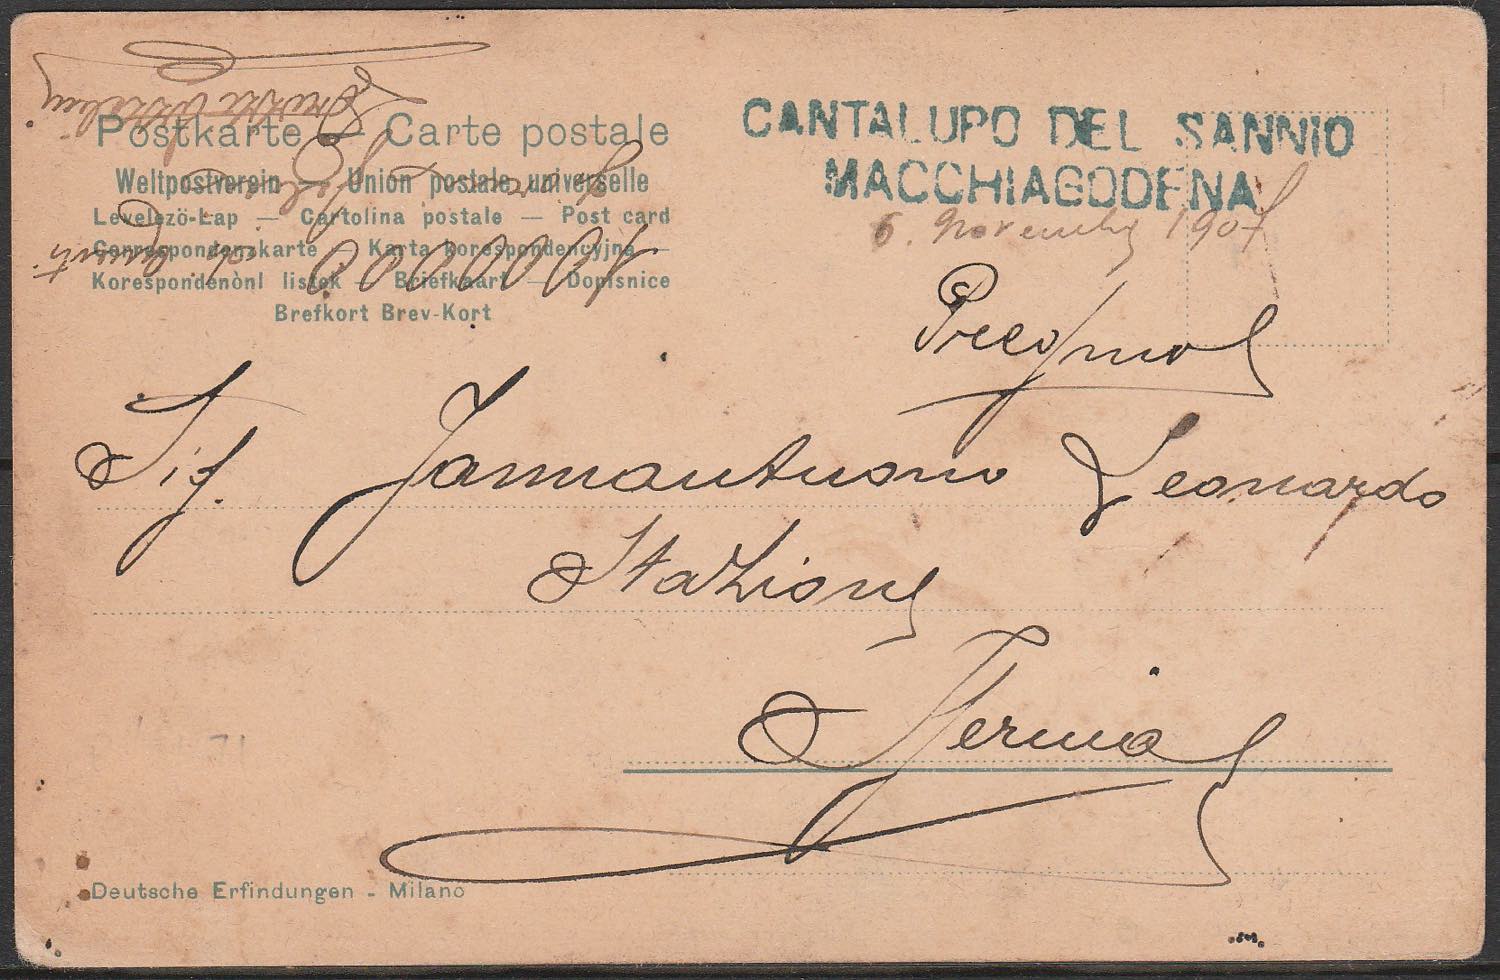 Postkarte — Carte postale
Weltpostverein — Union postale universelle
Levelezö-Lap — Cartolina postale — Post card
Correspondenzkarte — Karta korespondencyjna —
Korespondenònl listek — Briefkaart — Dopisnice
Brefkort Brev-Kort
CANTALUPO DEL SANNIO
MACCHIAGODENA
6. novembre 1907
Pregmo
Sig. Jannantuono Leonardo
Stazione
Isernia
Deutsche Erfindungen - Milano
1000000 di